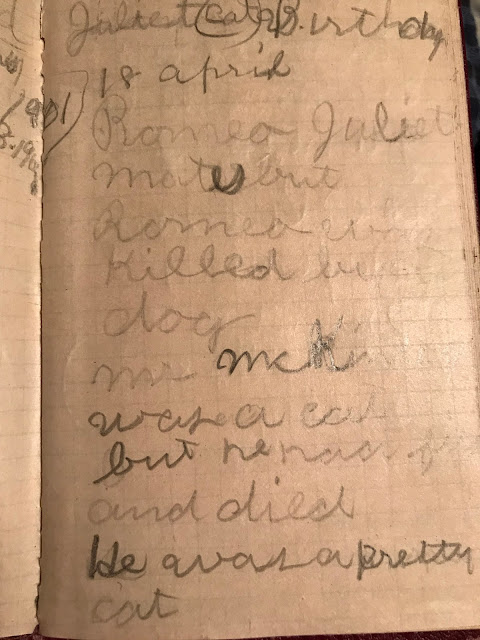 Juliet (cat) Birthday
18 april
1901
Romeo Juliet
mates but
Romeo was
Killed by
dog
mr McKin
was a cat
but he had fit
and died
He was a pretty
cat